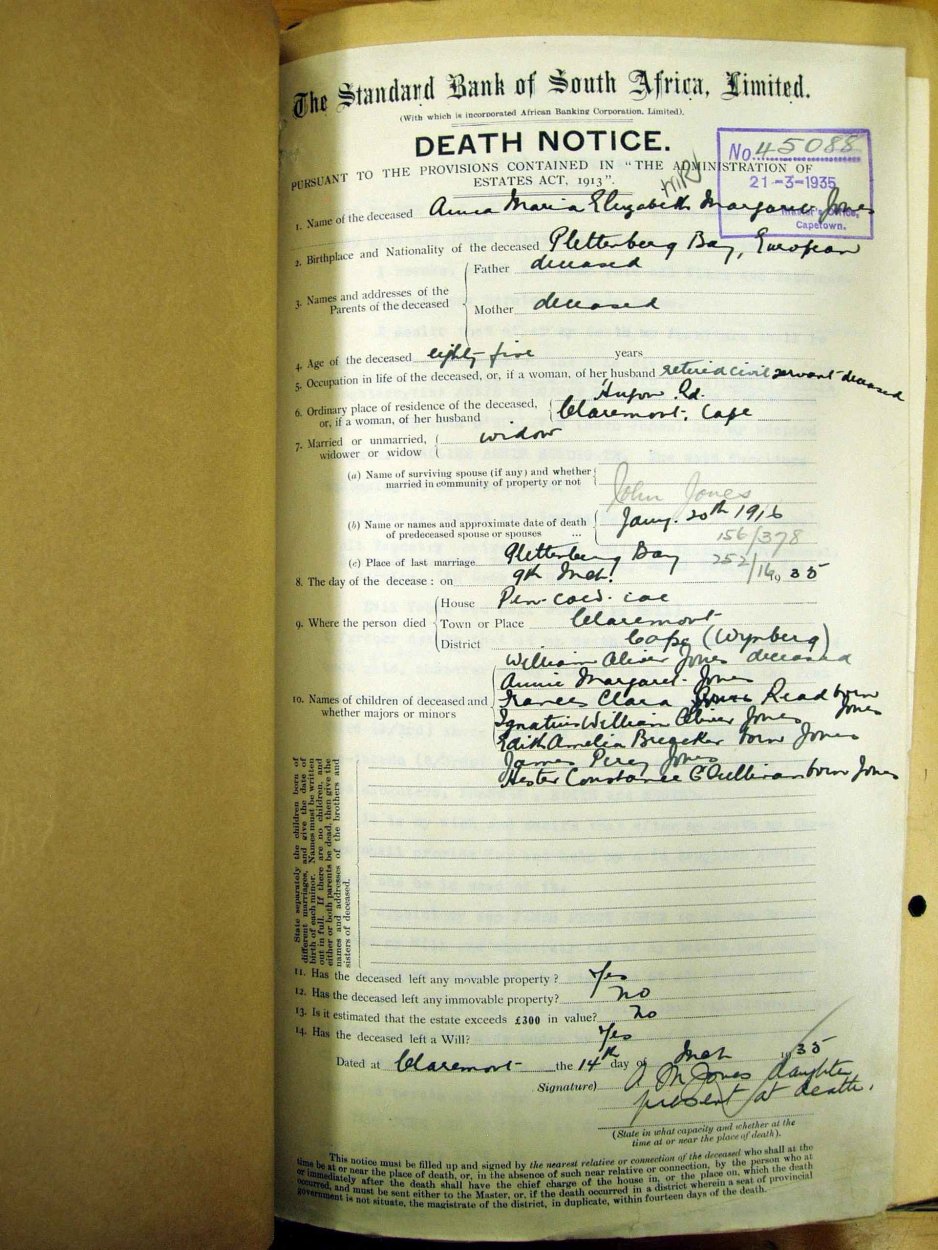 The Standard Bank of South Africa, Limited.
(With which is incorporated African Banking Corporation, Limited).
DEATH NOTICE.
PURSUANT TO THE PROVISIONS CONTAINED IN "THE ADMINISTRATION OF
ESTATES ACT, 1913".
No. 45088
21-3-1935
Master's Office,
Capetown.
1. Name of the deceased Anna Maria Elizabeth Margaret Jones
2. Birthplace and Nationality of the deceased Plettenberg Bay, European
3. Names and addresses of the Parents of the deceased
Father deceased
Mother deceased
4. Age of the deceased eighty five years
5. Occupation in life of the deceased, or, if a woman, of her husband retired civil servant deceased
6. Ordinary place of residence of the deceased, or, if a woman, of her husband
Rd.
Claremont, Cape
7. Married or unmarried, widower or widow widow
(a) Name of surviving spouse (if any) and whether married in community of property or not
John Jones
(b) Name or names and approximate date of death of predeceased spouse or spouses ... Jany. 20th 1916
156/378
(c) Place of last marriage Plettenberg Bay 252/16
8. The day of the decease: on 9th Mch. 1935
9. Where the person died
House Pen-coed-cae
Town or Place Claremont
District Cape (Wynberg)
10. Names of children of deceased and whether majors or minors
William Oliver Jones deceased
Annie Margaret Jones
Frances Clara Read born Jones
Ignatius William Oliver Jones
Edith Amelia born Jones
James Percy Jones
Hester Constance O'Sullivan born Jones
State separately the children born of
different marriages, and give the date of
birth of each minor. Names must be written
out in full. If there are no children, and
either or both parents be dead, then give the
names and addresses of the brothers and
sisters of deceased.
11. Has the deceased left any movable property? Yes
12. Has the deceased left any immovable property? no
13. Is it estimated that the estate exceeds £300 in value? no
14. Has the deceased left a Will? Yes
Dated at Claremont the 14th day of Mch 1935
Signature) A M Jones daughter
present at death.
(State in what capacity and whether at the
time at or near the place of death).
This notice must be filled up and signed by the nearest relative or connection of the deceased who shall at the
time be at or near the place of death, or, in the absence of such near relative or connection, by the person who at
or immediately after the death shall have the chief charge of the house in, or the place on, which the death
occurred, and must be sent either to the Master, or, if the death occurred in a district wherein a seat of provincial
government is not situate, the magistrate of the district, in duplicate, within fourteen days of the death.